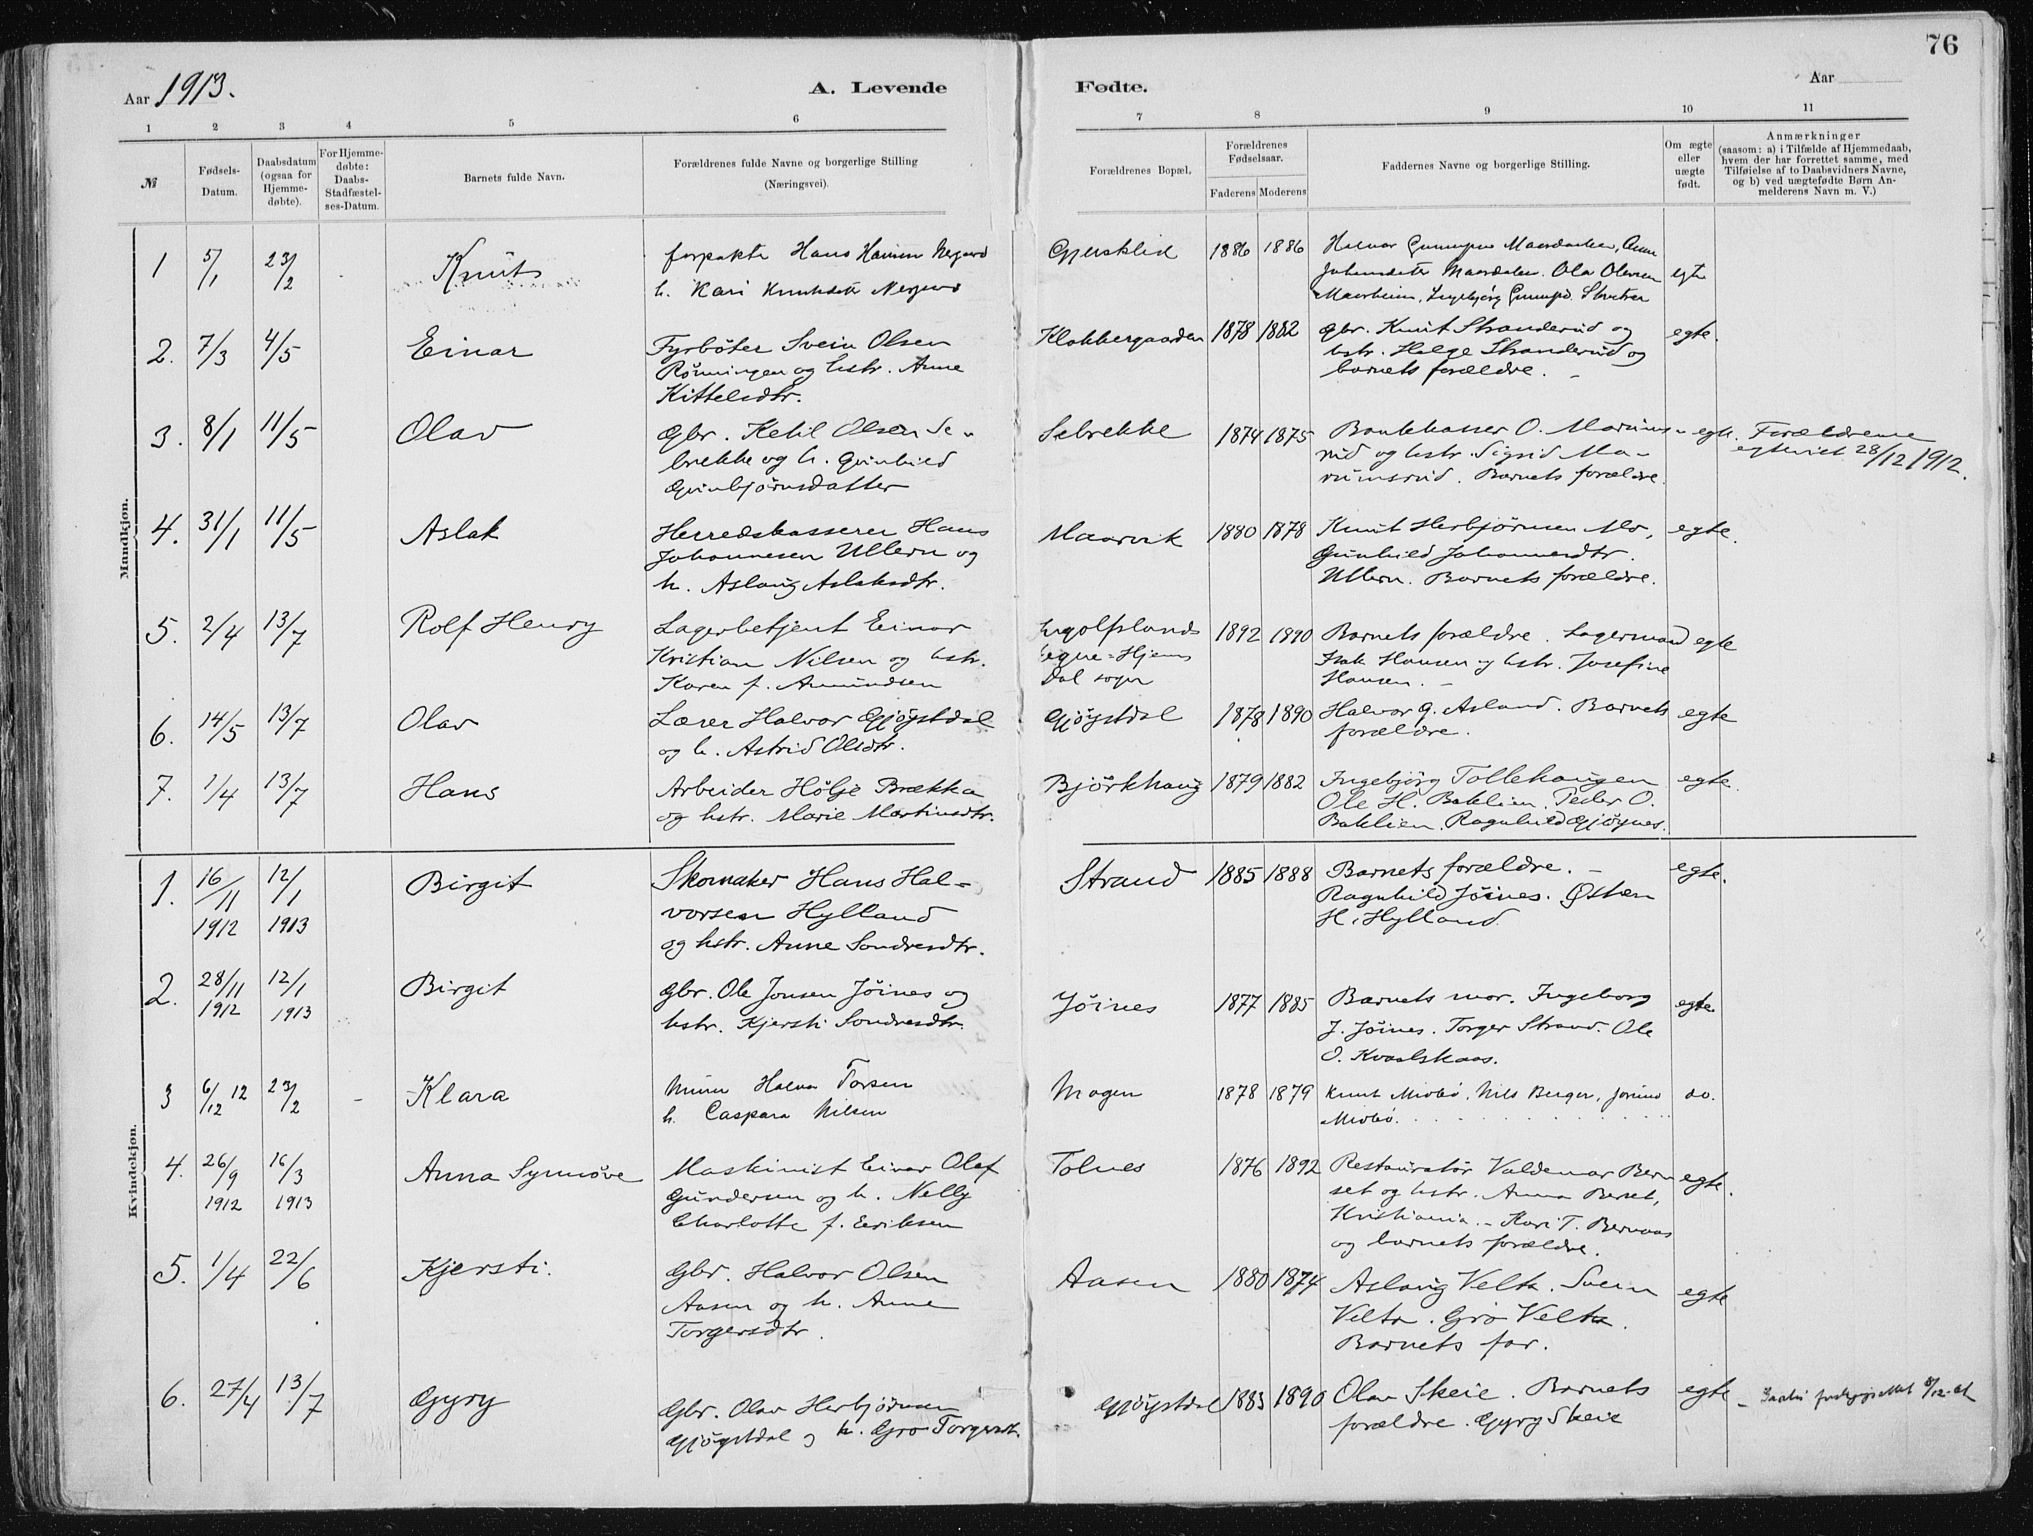 76
Aar 1913.
A. Levende Fødte.
Aar
1 2 3 4 5 6 7 8 9 10 11
№
Fødsels-Datum.
Daabsdatum (ogsaa for Hjemme-døbte).
For Hjemme-døbte: Daabs-Stadfæstel-ses-Datum.
Barnets fulde Navn.
Forældrenes fulde Navne og borgerlige Stilling
(Næringsvei).
Forældrenes Bopæl,
Forældrenes Fødselsaar.
Faderens Moderens
Faddernes Navne og borgerlige Stilling.
Om ægte eller uægte født.
Anmærkninger
(saasom: a) i Tilfælde af Hjemmedaab,
hvem der har forrettet samme, med
Tilføielse af to Daabsvidners Navne,
og b) ved uægtefødte Børn An-
melderens Navn m. V.)
Mandkjøn.
1 5/1 23/2 Knut
forpakter Hans Hansen
h. Kari Knutsdtr
1886 1886
Halvor
Ola Olessen
Ingebjørg
egte
2. 7/3 4/5 Einar
Fyrbøter Svein Olsen
Rønningen og hstr. Anne
Kittelsdtr.
Klokkergaarden 1878 1882
gbr. Knut Stranderud og
hstr. Helge Stranderud og
barnets forældre. –
egte.
3. 8/1 11/5 Olav
Gbr. Ketil Olsen Se-
brekke og h. Gunhild
Gunbjørnsdatter
Sebrekke 1874 1875
Bankkasser O. Marums-
rud og hstr. Sigrid Ma-
rumsrud. Barnets forældre.
egte. Forældrene
egteviet 28/12 1912.
4. 31/1 11/5 Aslak
Herredskasserer Hans
Johannesen Ullern og
h. Aslaug Aslaksdtr.
Maarvik 1880 1878
Knut Herbjørnsen Mo,
Gunhild Johannesdtr.
Ullern. Barnets forældre.
egte.
5. 2/4 13/7 Rolf Henry
Lagerbetjent Einar
Kristian Nilsen og hstr.
Karen f. Amundsen
Ingolfslands
egne-Hjem
Dal sogn
1892 1890
Barnets forældre. Lagermand
Isak Hansen og hstr. Josefine
Hansen. –
egte
6. 14/5 13/7 Olav
Lærer Halvor Gjøystdal
og h. Astrid Olsdtr.
Gjøystdal 1878 1890
Halvor G. Asland. Barnets
forældre.
egte
7. 1/4 13/7 Hans
Arbeider Hølje Brækka
og hstr. Marie Martinsdtr.
Bjørkhaug 1879 1882
Ingebjørg Tollehaugen
Ole H. Baklien. Peder O.
Baklien. Ragnhild Gjøynes.
egte.
Kvindekjøn.
1. 16/11 1912 12/1 1913 Birgit
Skomaker Hans Hal-
vorsen Hylland
og hstr. Anne Sondresdtr.
Strand 1885 1888
Barnets forældre. –
Ragnhild Jøines. Østen
H. Hylland.
egte.
2. 28/11 1912 12/1 1913 Birgit
Gbr. Ole Jonsen Jøines og
hstr. Kjersti Sondresdtr.
Jøines 1877 1885
Barnets mor. Ingeborg
J. Jøines. Torger Strand. Ole
O. Kvaalskaas.
egte.
3 6/12 12 23/2 – Klara
Halvor Torsen
h. Caspara Nilsen
Mogen 1878 1879
Knut Miobø, Nils Berger, Jorund
Miobø.
do.
4. 26/9 1912 16/3 1913 Anna Synnøve
Maskinist Einar Olaf
Gundersen og h. Nelly
Charlotte f. Eriksen
Tolnes 1876 1892
Restauratør Valdemar Bern
set og hstr. Anna Berset,
Kristiania. – Kari T. Bernaas
og barnets forældre.
egte.
5. 1/4 22/6 Kjersti.
Gbr. Halvor Olsen
Aasen og h. Anne
Torgersdtr.
Aasen 1880 1874
Aslaug Velta. Svein
Velta. Gro Velta.
Barnets far.
egte
6. 27/4 13/7 Gyry
Gbr. Olav Herbjørnsen
Gjøystdal og h. Gro Torgersdt.
Gjøystdal 1883 1890
Olav Skeie. Barnets
forældre. Gyry Skeie
egte